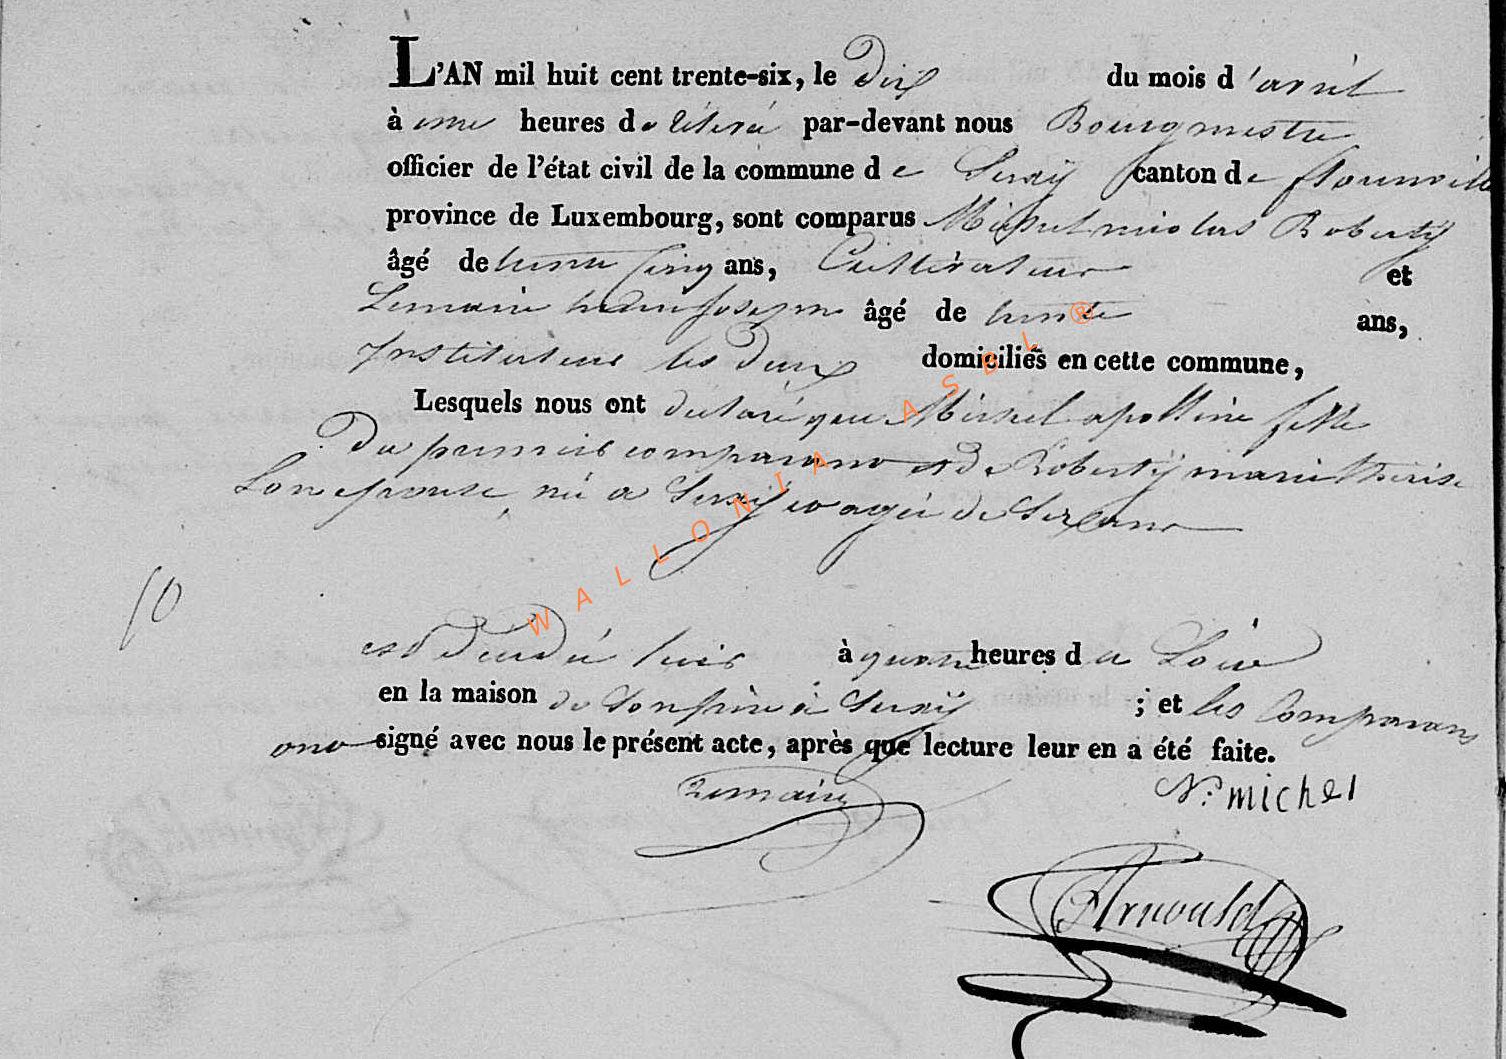 L'AN mil huit cent trente-six, le Dix du mois d'avril
à une heures de relevé par-devant nous Bourgmestre
officier de l'état civil de la commune de canton de florenville
province de Luxembourg, sont comparus Michel nicolas Roberty
âgé de trente cinq ans, Cultivateur et
Lemaire henri joseph âgé de trente ans,
Instituteur les deux domiciliés en cette commune,
Lesquels nous ont declaré que Michel apolline fille
Du premier comparant et de Roberty marie therese
Son epouse, né a et agée de Six ans
10
est decedé hier à quatre heures du Soir
en la maison de Son père à ; et les Comparans
ont signé avec nous le présent acte, après que lecture leur en a été faite.
Lemaire N. michel
Arnould
WALLONIA ASBL ®